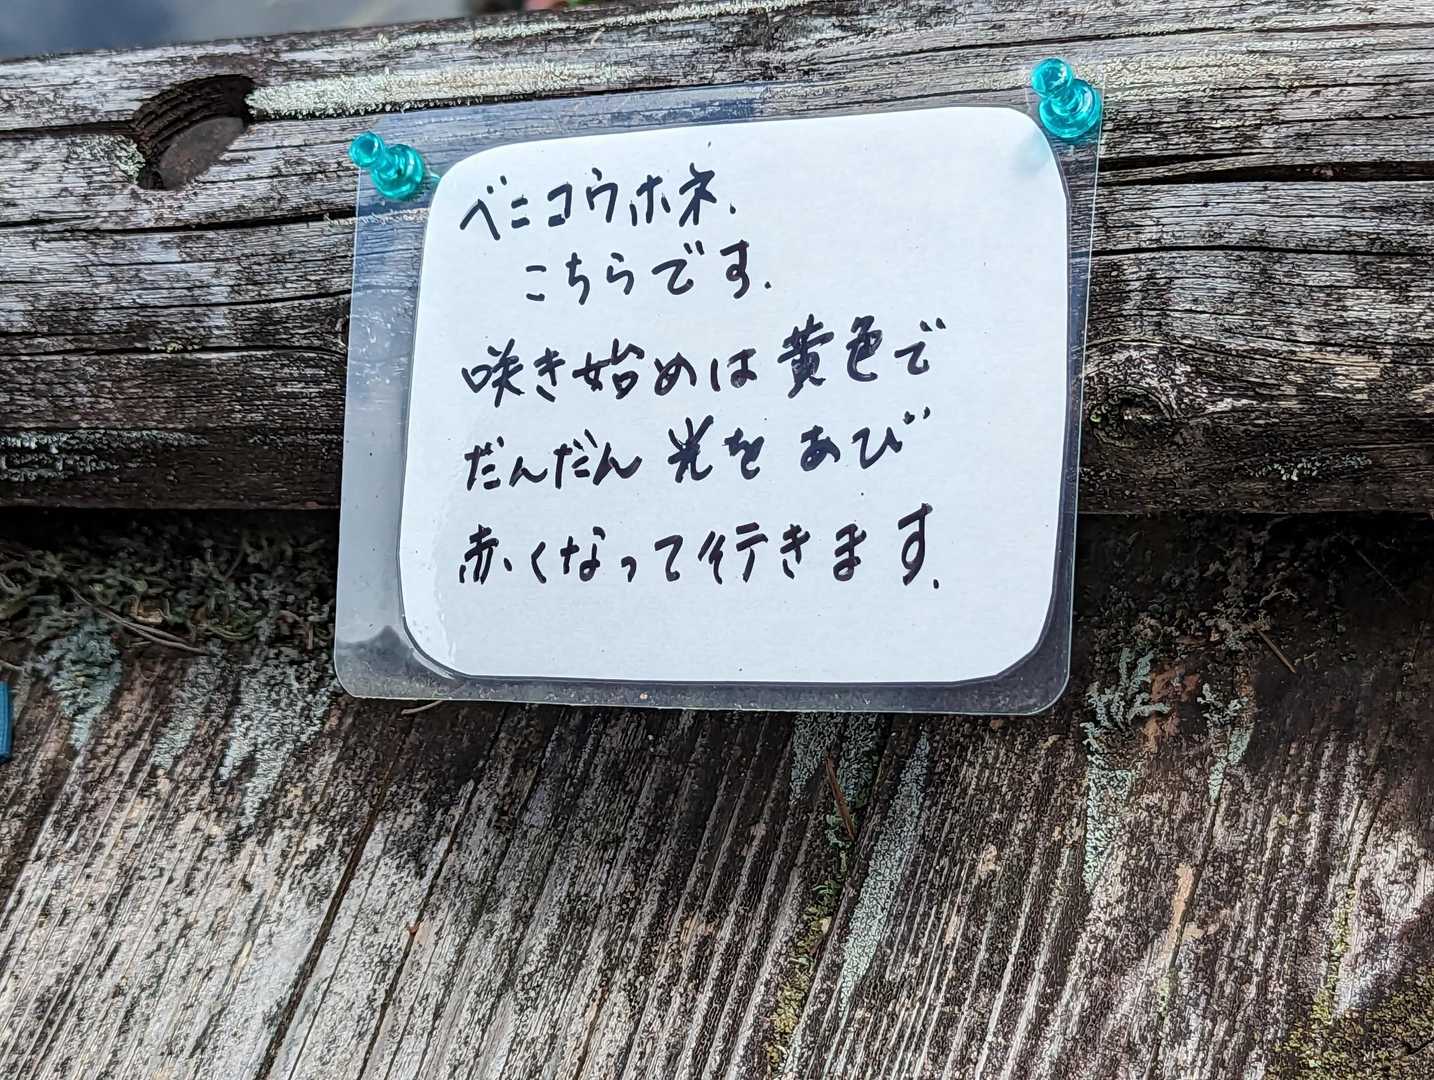 ベニコウホネ.
こちらです.
咲き始めは黄色で
だんだん光をあび
赤くなって行きます.